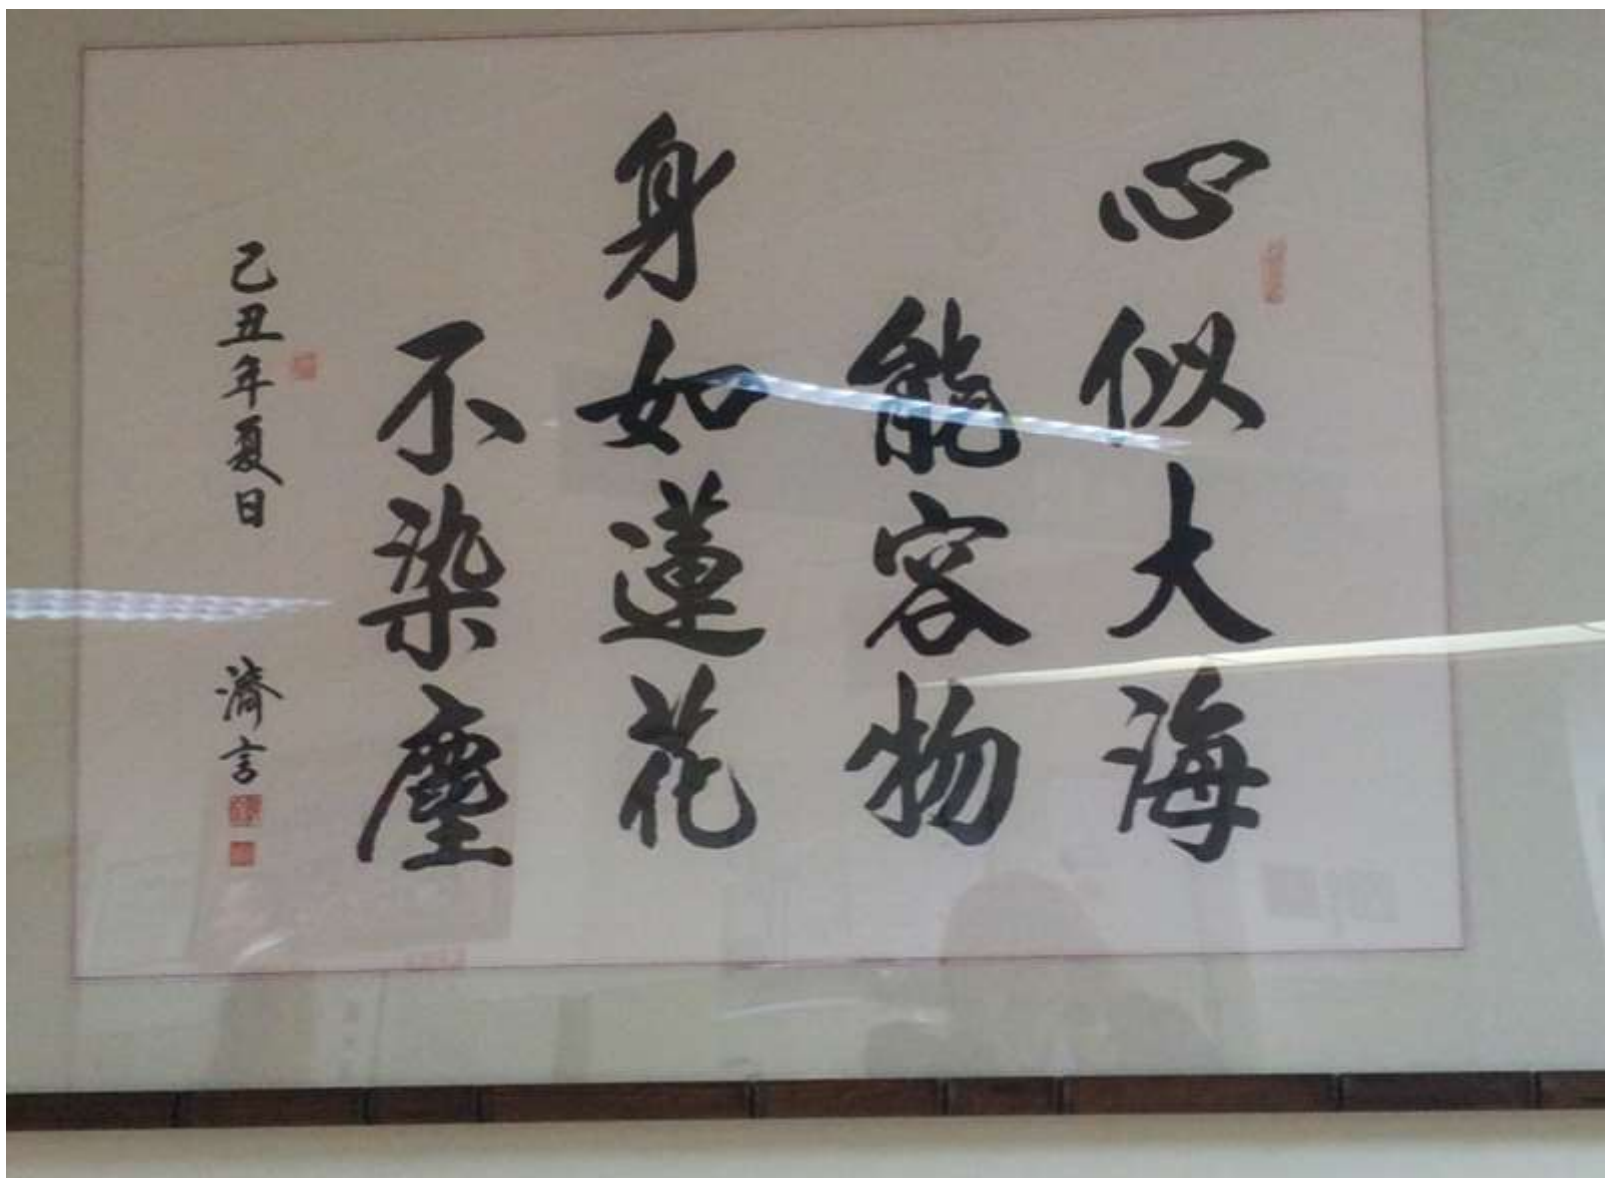 心似大海
能容物
身如蓮花
不染塵
己丑年夏日
濟言